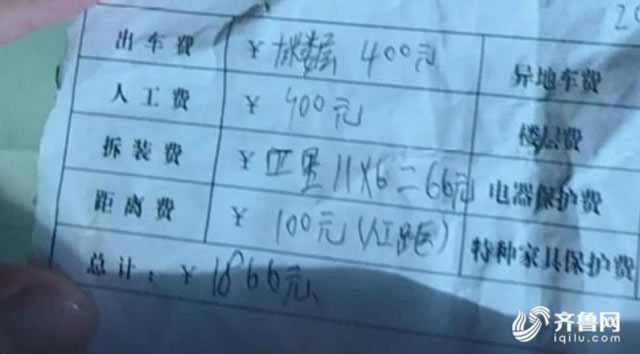 20
出车费 ¥ 400元 异地车费
人工费 ¥ 400元 楼层费
拆装费 ¥ 公里11X6=66元 电器保护费
距离费 ¥ 100元(人工距) 特种家具保护费
总计:¥ 1866元
齐鲁网
iqilu.com